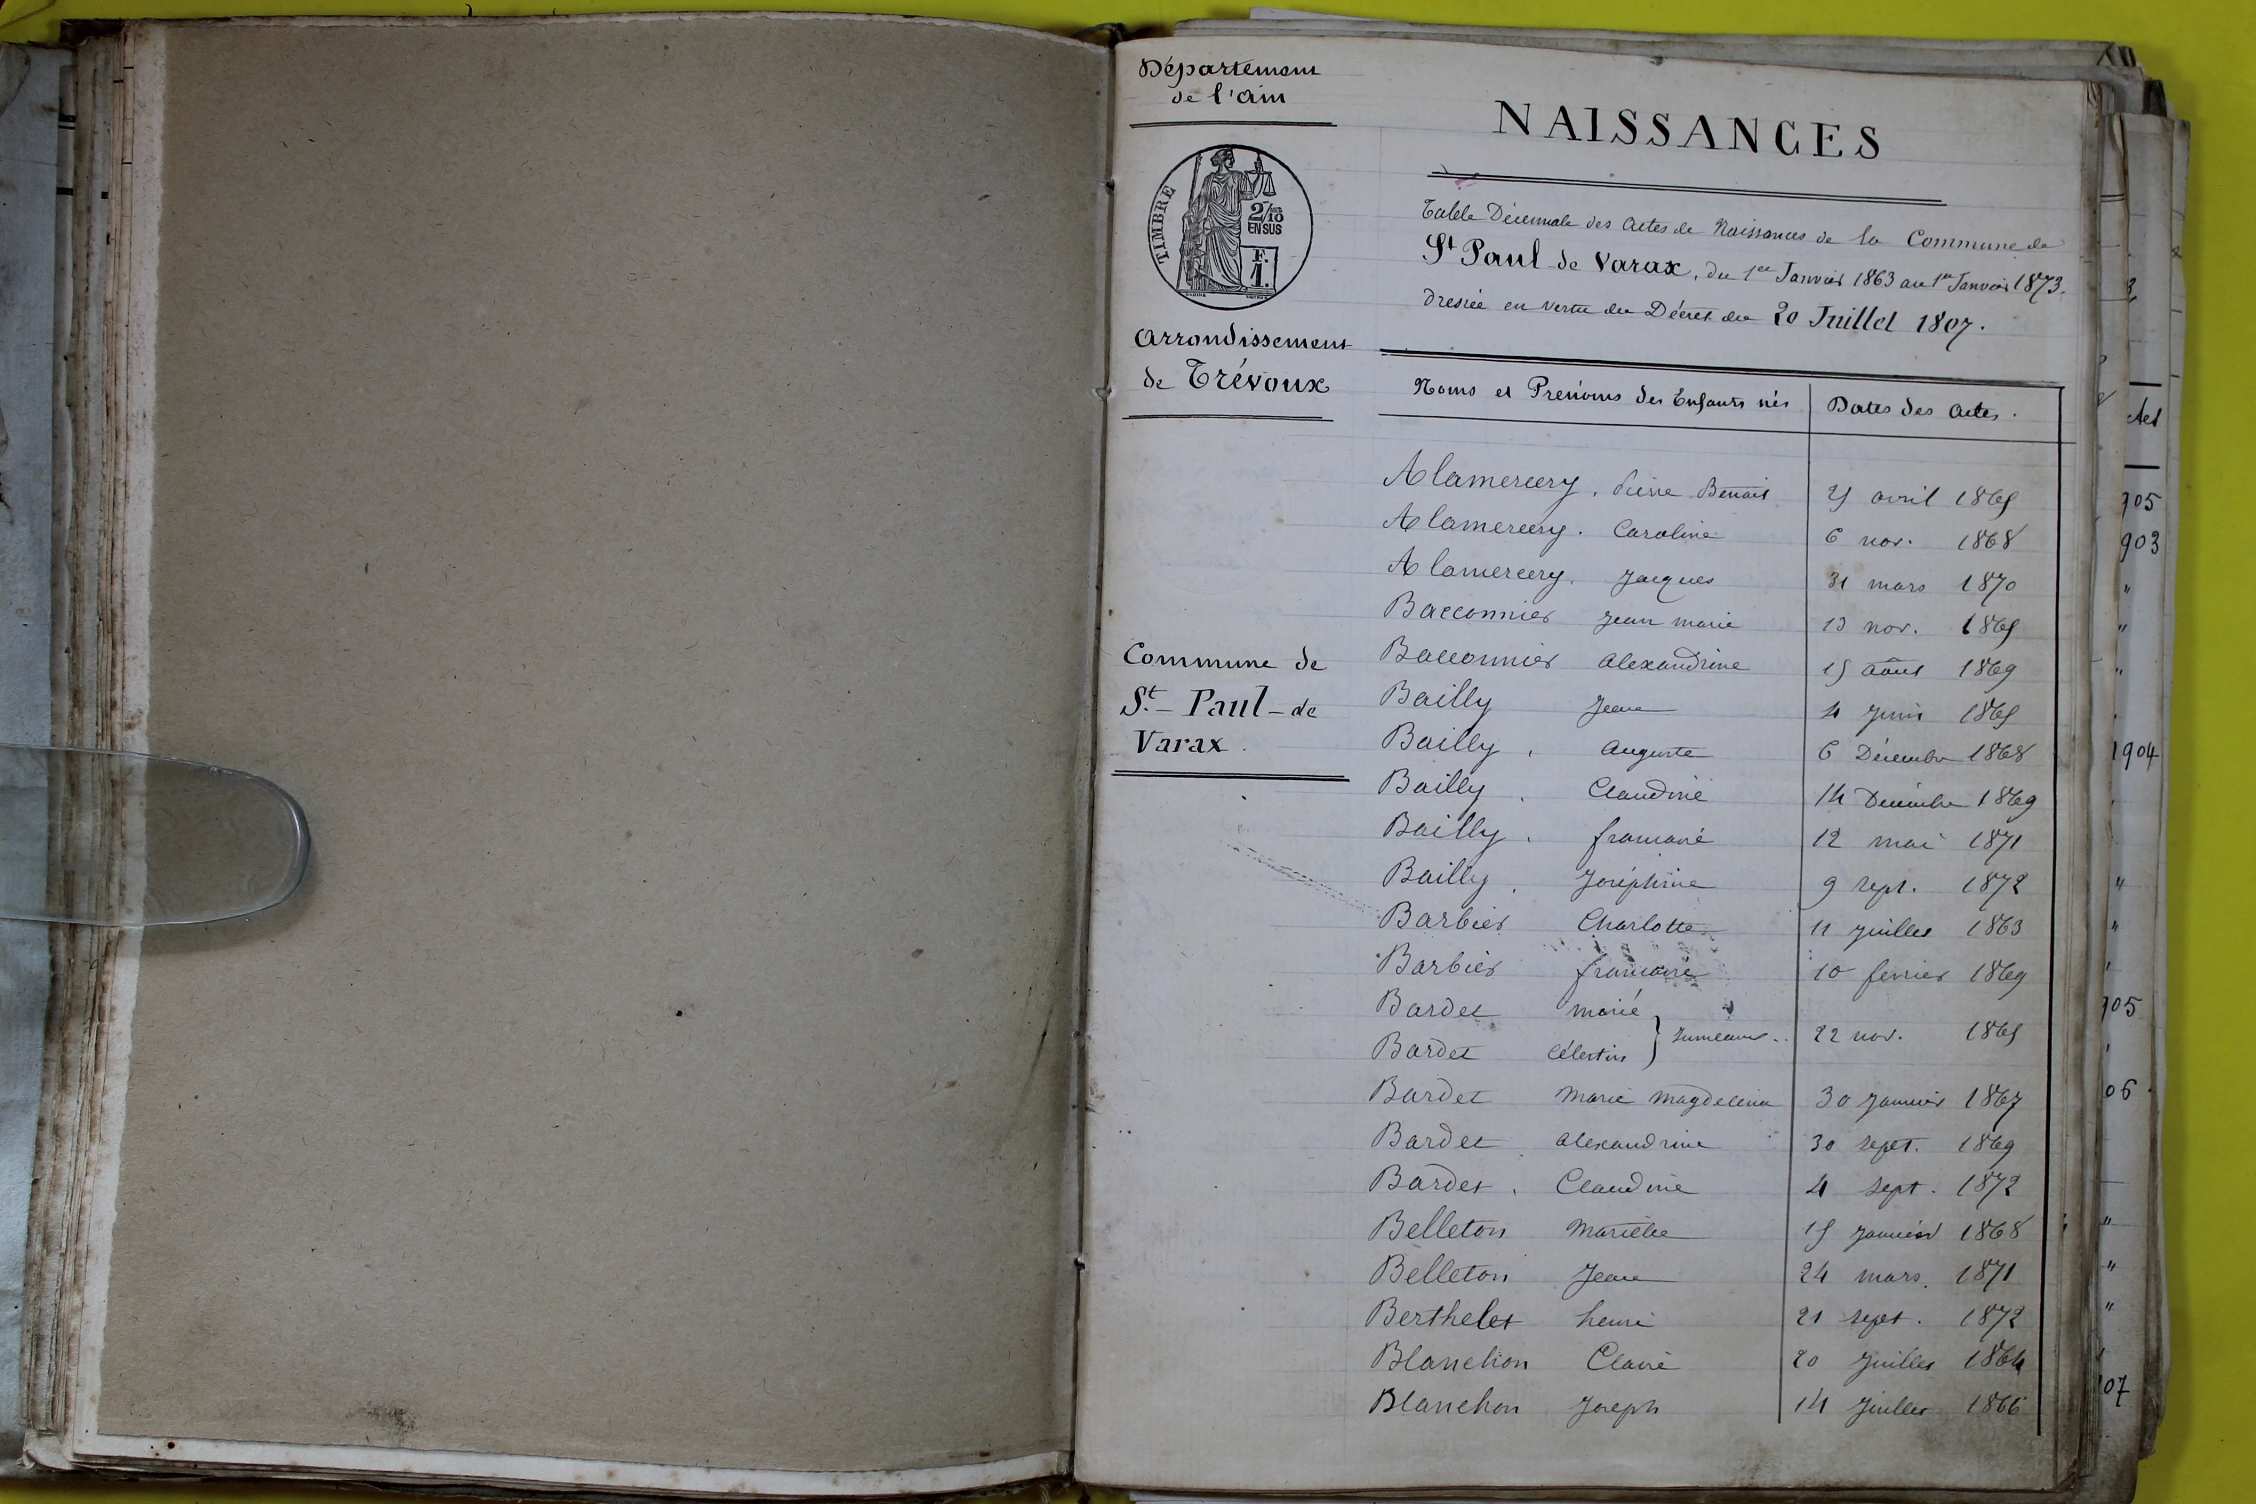 Département
de l'Ain
TIMBRE
2/10
EN SUS
F.
1.
Arrondissement
de Trévoux
Commune de
St. Paul-de
Varax.
NAISSANCES
Table Décennale des Actes de Naissances de la Commune de
St Paul de Varax, du 1er Janvier 1863 au 1er Janvier 1873.
dressée en vertu du Décret du 20 Juillet 1807.
Noms et Prénoms des Enfants nés Dates des actes.
Alamercery. Pierre Benoit 25 avril 1865
Alamercery. Caroline 6 nov. 1868
Alamercery. Jacques 31 mars 1870
Bacconnier Jean marie 13 nov. 1865
Bacconnier alexandrine 15 août 1869
Bailly Jean 4 Juin 1865
Bailly, auguste 6 Décembre 1868
Bailly, Claudine 14 Décembre 1869
Bailly, 12 mai 1871
Bailly, Joséphine 9 sept. 1872
Barbier Charlotte 11 Juillet 1863
Barbier 10 fevrier 1869
Bardet marie
Bardet Célestin } Jumeaux.. 22 nov. 1865
Bardet Marie Magdeleine 30 Janvier 1867
Bardet alexandrine 30 sept. 1869
Bardet. Claudine 4 sept. 1872
Belleton Mariette 15 Janvier 1868
Belleton Jean 24 mars. 1871
Berthelet henri 21 sept. 1872
Blanchon Claire 20 Juillet 1864
Blanchon Joseph 14 Juillet 1866
Act
905
903
"
"
"
1904
"
"
905
06
"
"
"
07